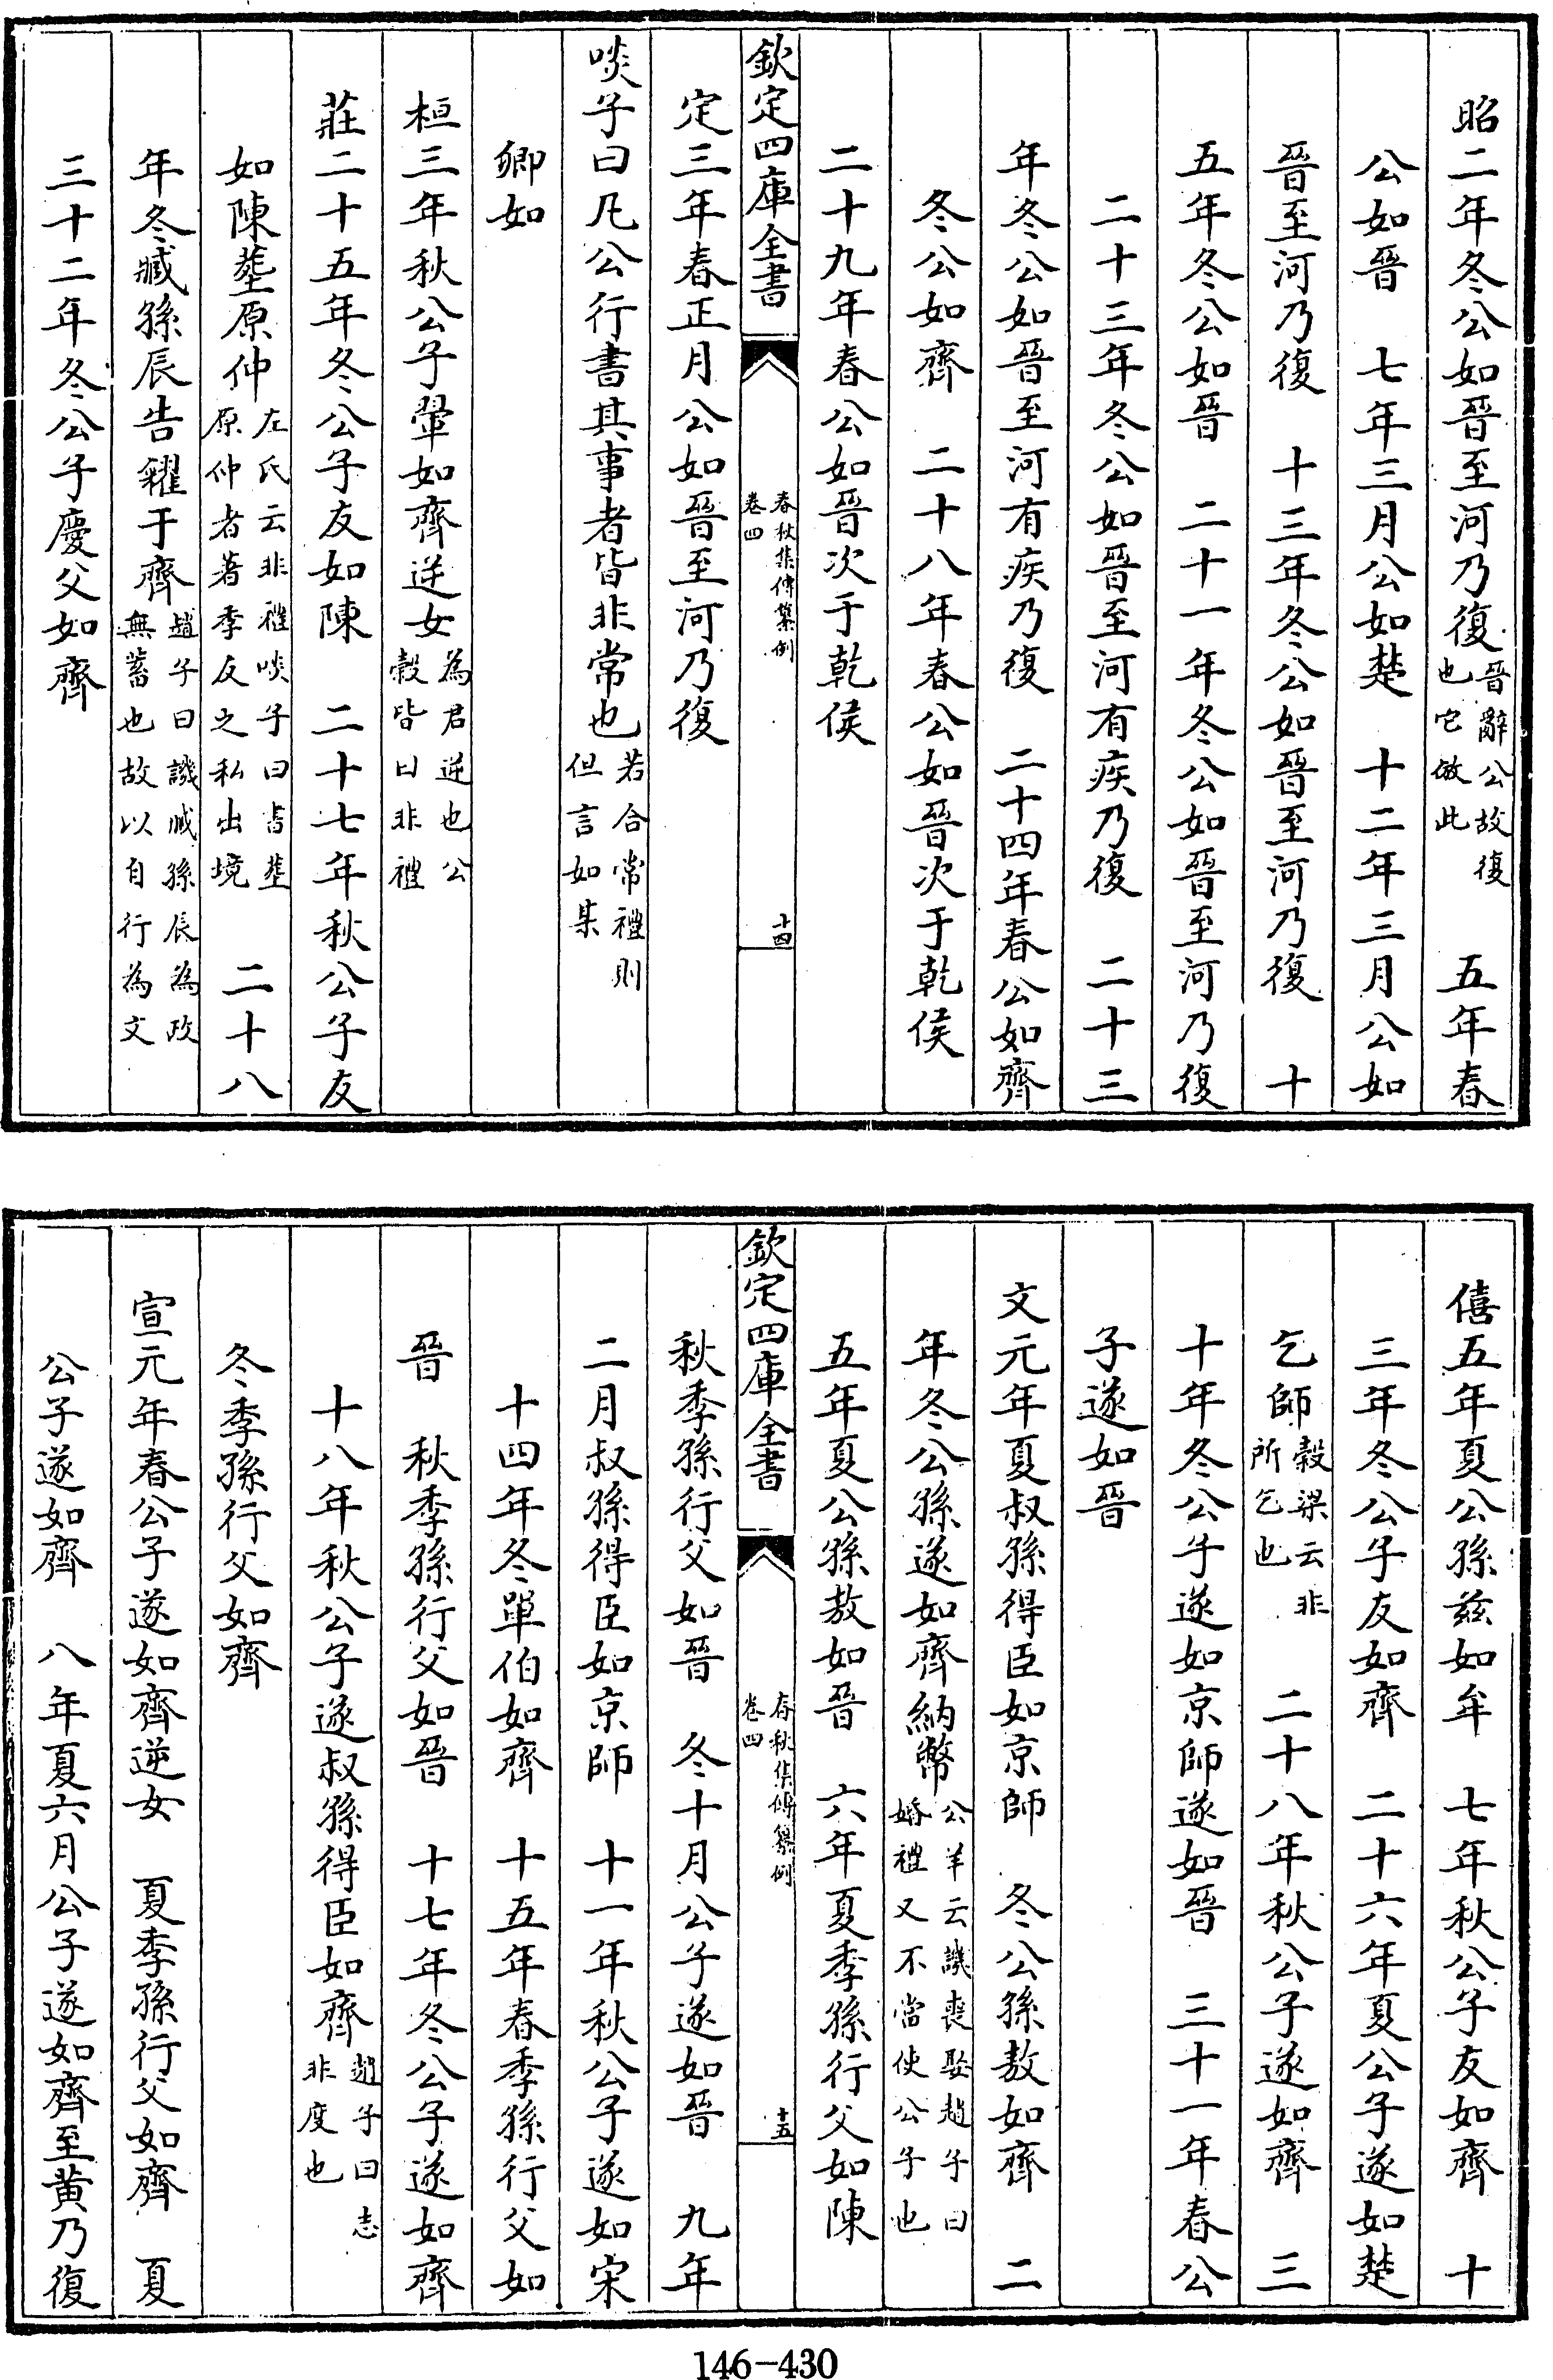 昭二年冬公如晉至河乃復晉辭公故復也它倣此　五年春
公如晉　七年三月公如楚　十二年三月公如
晉至河乃復　十三年冬公如晉至河乃復　十
五年冬公如晉　二十一年冬公如晉至河乃復
二十三年冬公如晉至河有疾乃復　二十三
年冬公如晉至河有疾乃復　二十四年春公如齊
冬公如齊　二十八年春公如晉次于乾侯
二十九年春公如晉次于乾侯
欽定四庫全書　春秋集傳纂例卷四　十四
定三年春正月公如晉至河乃復
啖子曰凡公行書其事者皆非常也若合常禮則但言如某
卿如
桓三年秋公子翬如齊逆女為君逆也公穀皆曰非禮
莊二十五年冬公子友如陳　二十七年秋公子友
如陳塟原仲左氏云非禮啖子曰書塟原仲者著季友之私出境　二十八
年冬臧孫辰告糴于齊趙子曰譏臧孫辰為政無蓄也故以自行為文
三十二年冬公子慶父如齊
僖五年夏公孫兹如牟　七年秋公子友如齊　十
三年冬公子友如齊　二十六年夏公子遂如楚
乞師穀梁云非所乞也　二十八年秋公子遂如齊　三
十年冬公子遂如京師遂如晉　三十一年春公
子遂如晉
文元年夏叔孫得臣如京師　冬公孫敖如齊　二
年冬公孫遂如齊納幣公羊云譏喪娶趙子曰婚禮又不當使公子也
五年夏公孫敖如晉　六年夏季孫行父如陳
欽定四庫全書　春秋集傳纂例卷四　十五
秋季孫行父如晉　冬十月公子遂如晉　九年
二月叔孫得臣如京師　十一年秋公子遂如宋
十四年冬單伯如齊　十五年春季孫行父如
晉　秋季孫行父如晉　十七年冬公子遂如齊
十八年秋公子遂叔孫得臣如齊趙子曰志非度也
冬季孫行父如齊
宣元年春公子遂如齊逆女　夏季孫行父如齊　夏
公子遂如齊　八年夏六月公子遂如齊至黃乃復
146-430